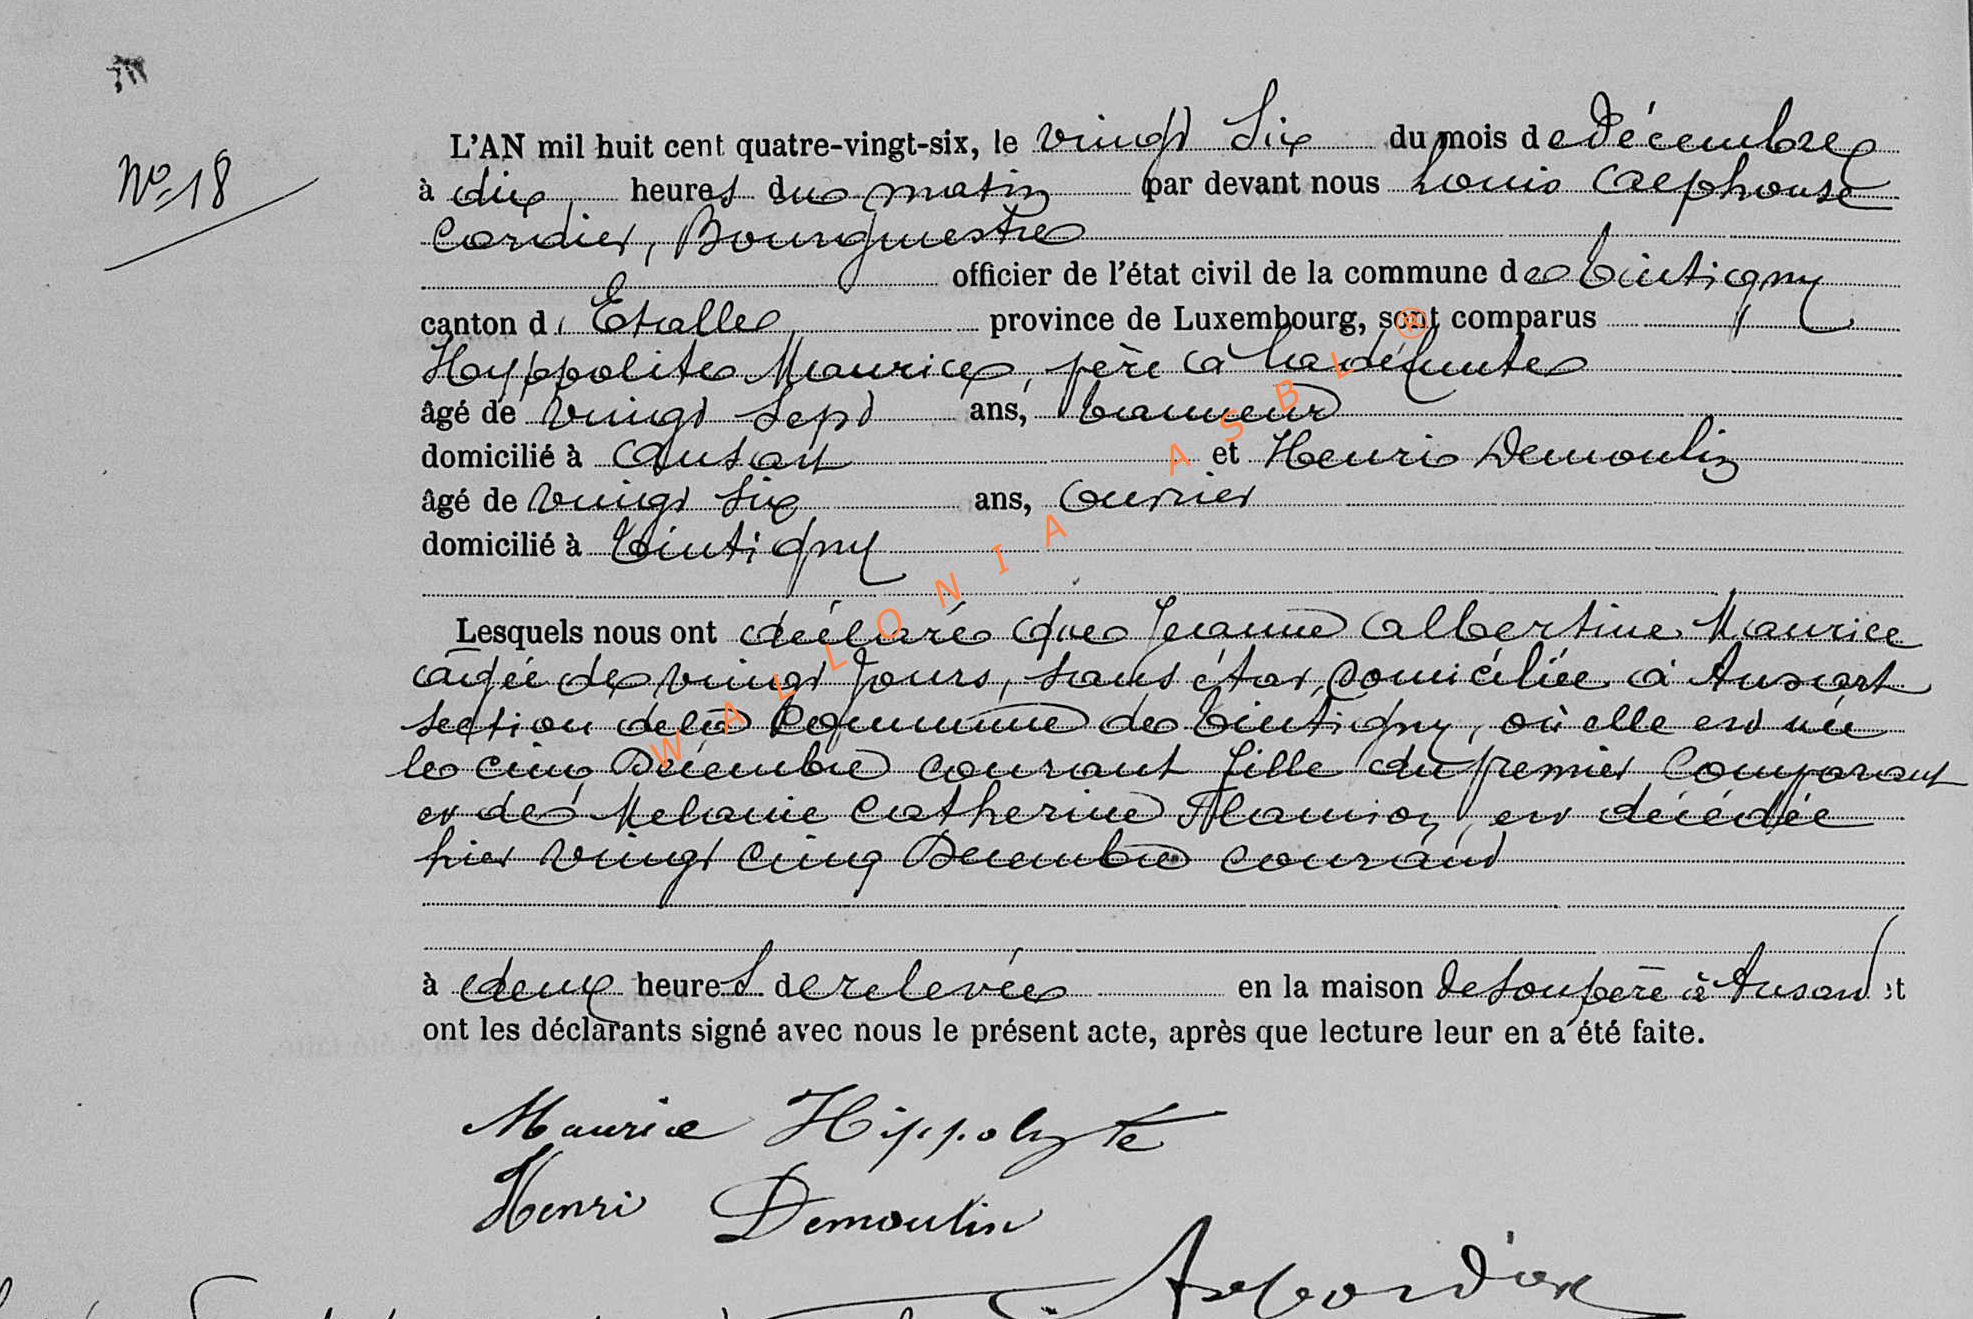 L'AN mil huit cent quatre-vingt-six, le vingt six du mois de Décembre
N° 18
à dix heures du matin par devant nous Louis Alphonse
Cordier, Bourgmestre
officier de l'état civil de la commune de Tintigny
canton d'Etalle province de Luxembourg, sont comparus
Hyppolite Maurice, père à la défunte
âgé de vingt sept ans, Tanneur
domicilié à Ansart et Henri Demoulin
âgé de vingt six ans, ouvrier
domicilié à Tintigny
Lesquels nous ont déclaré que Jeanne Albertine Maurice
âgée de vingt jours, sans état, domiciliée à Ansart
section de la Commune de Tintigny, où elle est née
le cinq Décembre courant fille du premier Comparant
et de Melanie Catherine est décédée
hier vingt cinq Decembre courant
à deux heures de relevée en la maison de son père à Ansart et
ont les déclarants signé avec nous le présent acte, après que lecture leur en a été faite.
Maurice Hippolyte
Henri Demoulin
WALLONIA ASBL ®